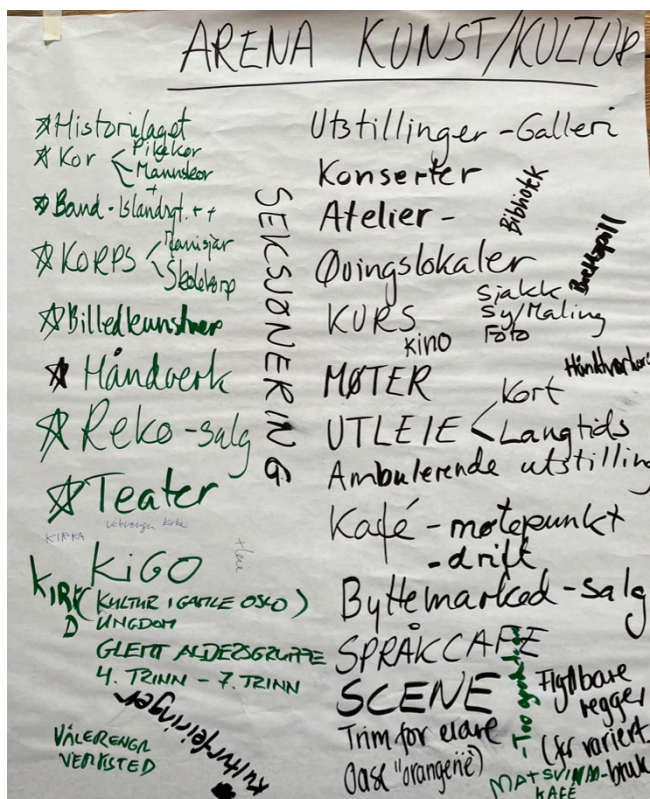 ARENA KUNST/KULTUR
Historielaget
Kor
Pikekor
Mannskor
+
Band - Islandsgt. ++
KORPS
Skolekorp
Billedkunstnere
Håndverk
Reko-salg
Teater
KIRKA
Vålerenga kirke
KiGO
(KULTUR I GAMLE OSLO)
UNGDOM
GLEMT ALDERSGRUPPE
4. TRINN - 7. TRINN
Kulturfeiringer
VÅLERENGA
VERKSTED
SEKSJONERING
Utstillinger - Galleri
Konserter
Atelier -
Bibliotek
Øvingslokaler
Brettspill
KURS
Sjakk
Sy/Maling
Foto
kino
MØTER
UTLEIE
Kort
Langtids
Ambulerende utstilling
Kafé - møtepunkt
- drift
Byttemarked - salg
SPRÅKCAFE
SCENE
Flyttbare
vegger
(for variert
bruk
Trim for eldre
Oase "orangerie")
MATSVINN-
KAFÉ